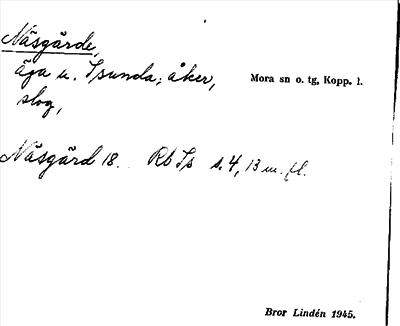 Näsgärde,
äga u. Isunda; åker,
slog,
Mora sn o. tg, Kopp. l.
Näsgärd 18. Rb Is s. 4, 13 m. fl.
Bror Lindén 1945.